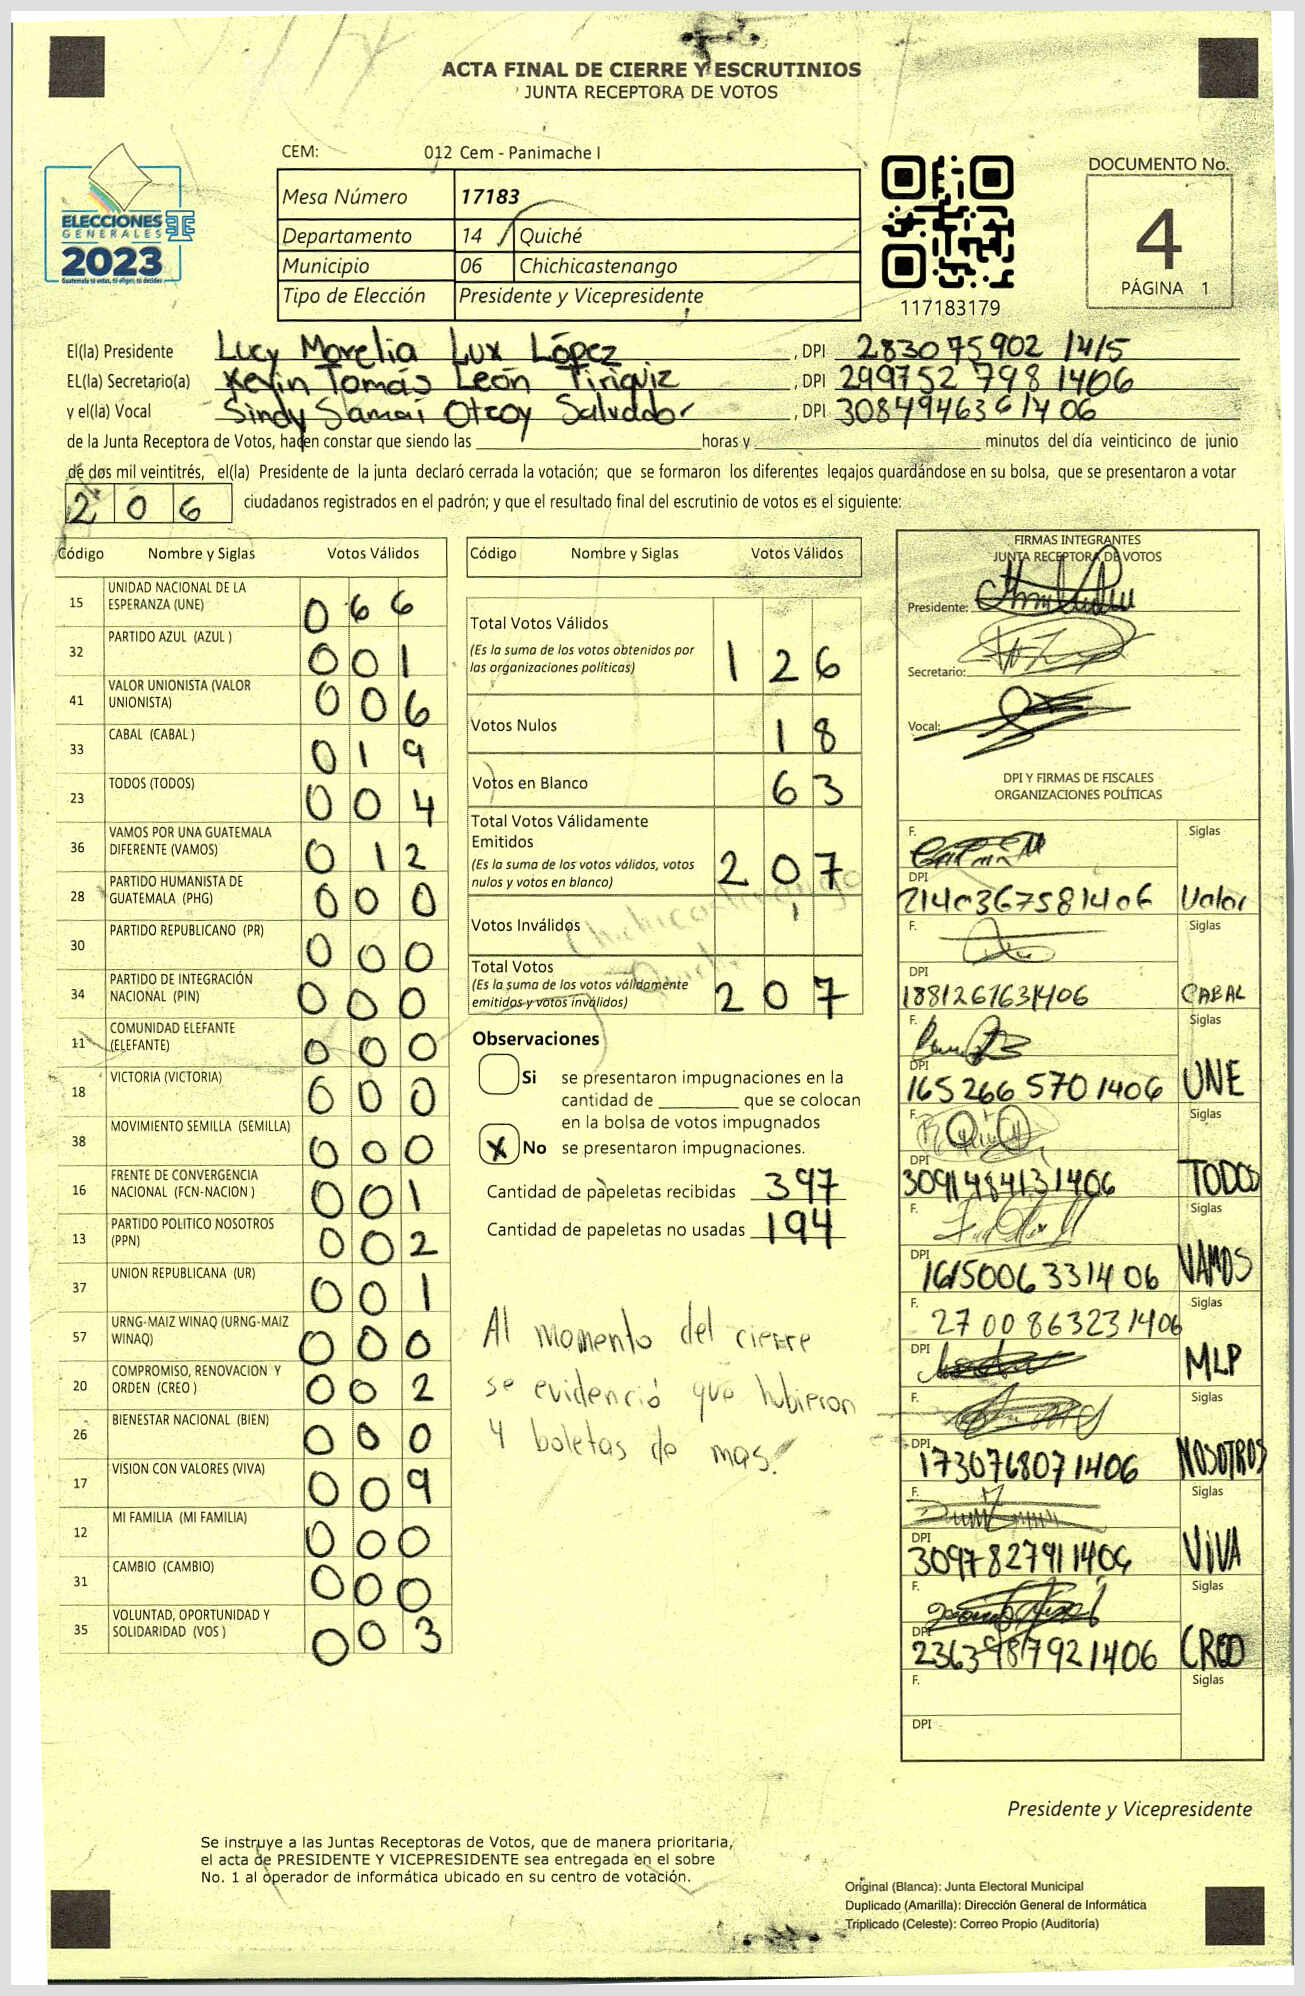 ACTA FINAL DE CIERRE Y ESCRUTINIOS
JUNTA RECEPTORA DE VOTOS
CEM: 012 Cem - Panimache I
ELECCIONES
GENERALES
2023
Guatemala tú votas, tú eliges, tú decides
Mesa Número 17183
Departamento 14 Quiché
Municipio 06 Chichicastenango
Tipo de Elección Presidente y Vicepresidente
117183179
DOCUMENTO No.
4
PÁGINA 1
El(la) Presidente Lucy Morelia Lux López , DPI 283075902 1415
EL(la) Secretario(a) Kevin Tomás León Tiriquiz , DPI 299752 798 1406
y el(la) Vocal Sindy Otzoy Salvador , DPI 3084946361406
de la Junta Receptora de Votos, hacen constar que siendo las horas y minutos del día veinticinco de junio
de dos mil veintitrés, el(la) Presidente de la junta declaró cerrada la votación; que se formaron los diferentes legajos guardándose en su bolsa, que se presentaron a votar
206 ciudadanos registrados en el padrón; y que el resultado final del escrutinio de votos es el siguiente:
Código Nombre y Siglas Votos Válidos
15 UNIDAD NACIONAL DE LA ESPERANZA (UNE) 066
32 PARTIDO AZUL (AZUL ) 001
41 VALOR UNIONISTA (VALOR UNIONISTA) 006
33 CABAL (CABAL ) 019
23 TODOS (TODOS) 004
36 VAMOS POR UNA GUATEMALA DIFERENTE (VAMOS) 012
28 PARTIDO HUMANISTA DE GUATEMALA (PHG) 000
30 PARTIDO REPUBLICANO (PR) 000
34 PARTIDO DE INTEGRACIÓN NACIONAL (PIN) 000
11 COMUNIDAD ELEFANTE (ELEFANTE) 000
18 VICTORIA (VICTORIA) 000
38 MOVIMIENTO SEMILLA (SEMILLA) 000
16 FRENTE DE CONVERGENCIA NACIONAL (FCN-NACION ) 001
13 PARTIDO POLITICO NOSOTROS (PPN) 002
37 UNION REPUBLICANA (UR) 001
57 URNG-MAIZ WINAQ (URNG-MAIZ WINAQ) 000
20 COMPROMISO, RENOVACION Y ORDEN (CREO ) 002
26 BIENESTAR NACIONAL (BIEN) 000
17 VISION CON VALORES (VIVA) 009
12 MI FAMILIA (MI FAMILIA) 000
31 CAMBIO (CAMBIO) 000
35 VOLUNTAD, OPORTUNIDAD Y SOLIDARIDAD (VOS ) 003
Código Nombre y Siglas Votos Válidos
Total Votos Válidos
(Es la suma de los votos obtenidos por las organizaciones políticas) 126
Votos Nulos 18
Votos en Blanco 63
Total Votos Válidamente Emitidos
(Es la suma de los votos válidos, votos nulos y votos en blanco) 207
Votos Inválidos
Chichicastenango
Quiché
Total Votos
(Es la suma de los votos válidamente emitidos y votos inválidos) 207
Observaciones
Si se presentaron impugnaciones en la
cantidad de que se colocan
en la bolsa de votos impugnados
X No se presentaron impugnaciones.
Cantidad de papeletas recibidas 397
Cantidad de papeletas no usadas 194
Al momento del cierre
se evidenció que hubieron
4 boletas de mas.
FIRMAS INTEGRANTES
JUNTA RECEPTORA DE VOTOS
Presidente:
Secretario:
Vocal:
DPI Y FIRMAS DE FISCALES
ORGANIZACIONES POLÍTICAS
F. Siglas
DPI 2140367581406 Valor
F. Siglas
DPI 1881261631406 CABAL
F. Siglas
DPI 165266 570 1406 UNE
F. Siglas
DPI 3091484131406 TODOS
F. Siglas
DPI 1615006331406 VAMOS
F. 2700863231406 Siglas
DPI MLP
F. Siglas
DPI 1730768071406 NOSOTROS
F. Siglas
DPI 3097827911406 VIVA
F. Siglas
DPI 2363987921406 CREO
F. Siglas
DPI
Presidente y Vicepresidente
Se instruye a las Juntas Receptoras de Votos, que de manera prioritaria,
el acta de PRESIDENTE Y VICEPRESIDENTE sea entregada en el sobre
No. 1 al operador de informática ubicado en su centro de votación.
Original (Blanca): Junta Electoral Municipal
Duplicado (Amarilla): Dirección General de Informática
Triplicado (Celeste): Correo Propio (Auditoría)